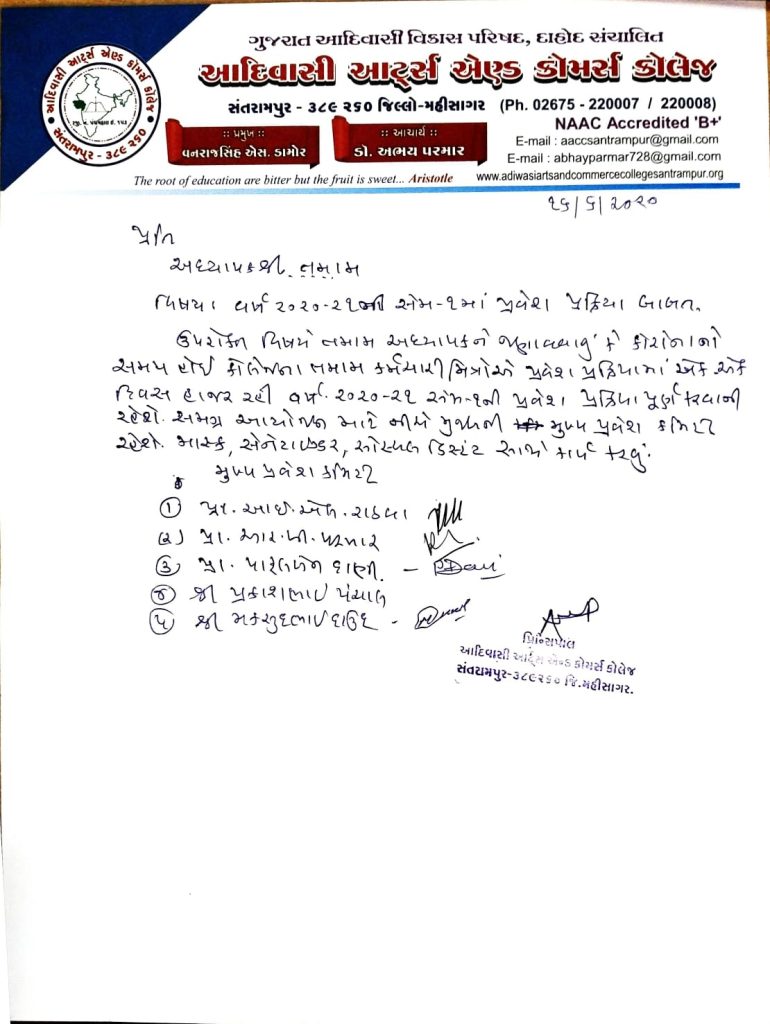 ગુજરાત આદિવાસી વિકાસ પરિષદ, દાહોદ સંચાલિત
આદિવાસી આર્ટ્સ એણ્ડ કોમર્સ કોલેજ
સંતરામપુર - ૩૮૯ ૨૬૦ જિલ્લો-મહીસાગર (Ph. 02675 - 220007 / 220008)
NAAC Accredited 'B+'
:: પ્રમુખ ::
વનરાજસિંહ એસ. ડામોર
:: આચાર્ય ::
ડૉ. અભય પરમાર
E-mail : aaccsantrampur@gmail.com
E-mail : abhayparmar728@gmail.com
The root of education are bitter but the fruit is sweet... Aristotle
www.adiwasiartsandcommercecollegesantrampur.org
આદિવાસી આર્ટ્સ એણ્ડ કોમર્સ કોલેજ
સંતરામપુર - ૩૮૯ ૨૬૦
૧૬/૬/૨૦૨૦
પ્રતિ
અધ્યાપકશ્રી તમામ
વિષય: વર્ષ ૨૦૨૦-૨૧ની સેમ-૧માં પ્રવેશ પ્રક્રિયા બાબત.
ઉપરોક્ત વિષયે તમામ અધ્યાપકને જણાવવાનું કે કોરોનાનો
સમય હોઈ કોલેજના તમામ કર્મચારી મિત્રોએ પ્રવેશ પ્રક્રિયામાં એક એક
દિવસ હાજર રહી વર્ષ ૨૦૨૦-૨૧ સેમ-૧ની પ્રવેશ પ્રક્રિયા પૂર્ણ કરવાની
રહેશે. સમગ્ર આયોજન માટે નીચે મુજબની મુખ્ય પ્રવેશ કમિટી
રહેશે. માસ્ક, સેનેટાઇઝર, સોશ્યલ ડિસ્ટંટ સાથે કાર્ય કરવું.
મુખ્ય પ્રવેશ કમિટી
૧ પ્રા. આઈ. એલ. રાઠવા
૨ પ્રા. આર. બી. પરમાર
૩ પ્રા. પારૂલબેન દાણી -
૪ શ્રી પ્રકાશભાઈ પંચાલ
૫ શ્રી મકસુદભાઈ દાઉદ -
પ્રિન્સિપાલ
આદિવાસી આર્ટ્સ એન્ડ કોમર્સ કોલેજ
સંતરામપુર-૩૮૯૨૬૦ જિ.મહીસાગર.